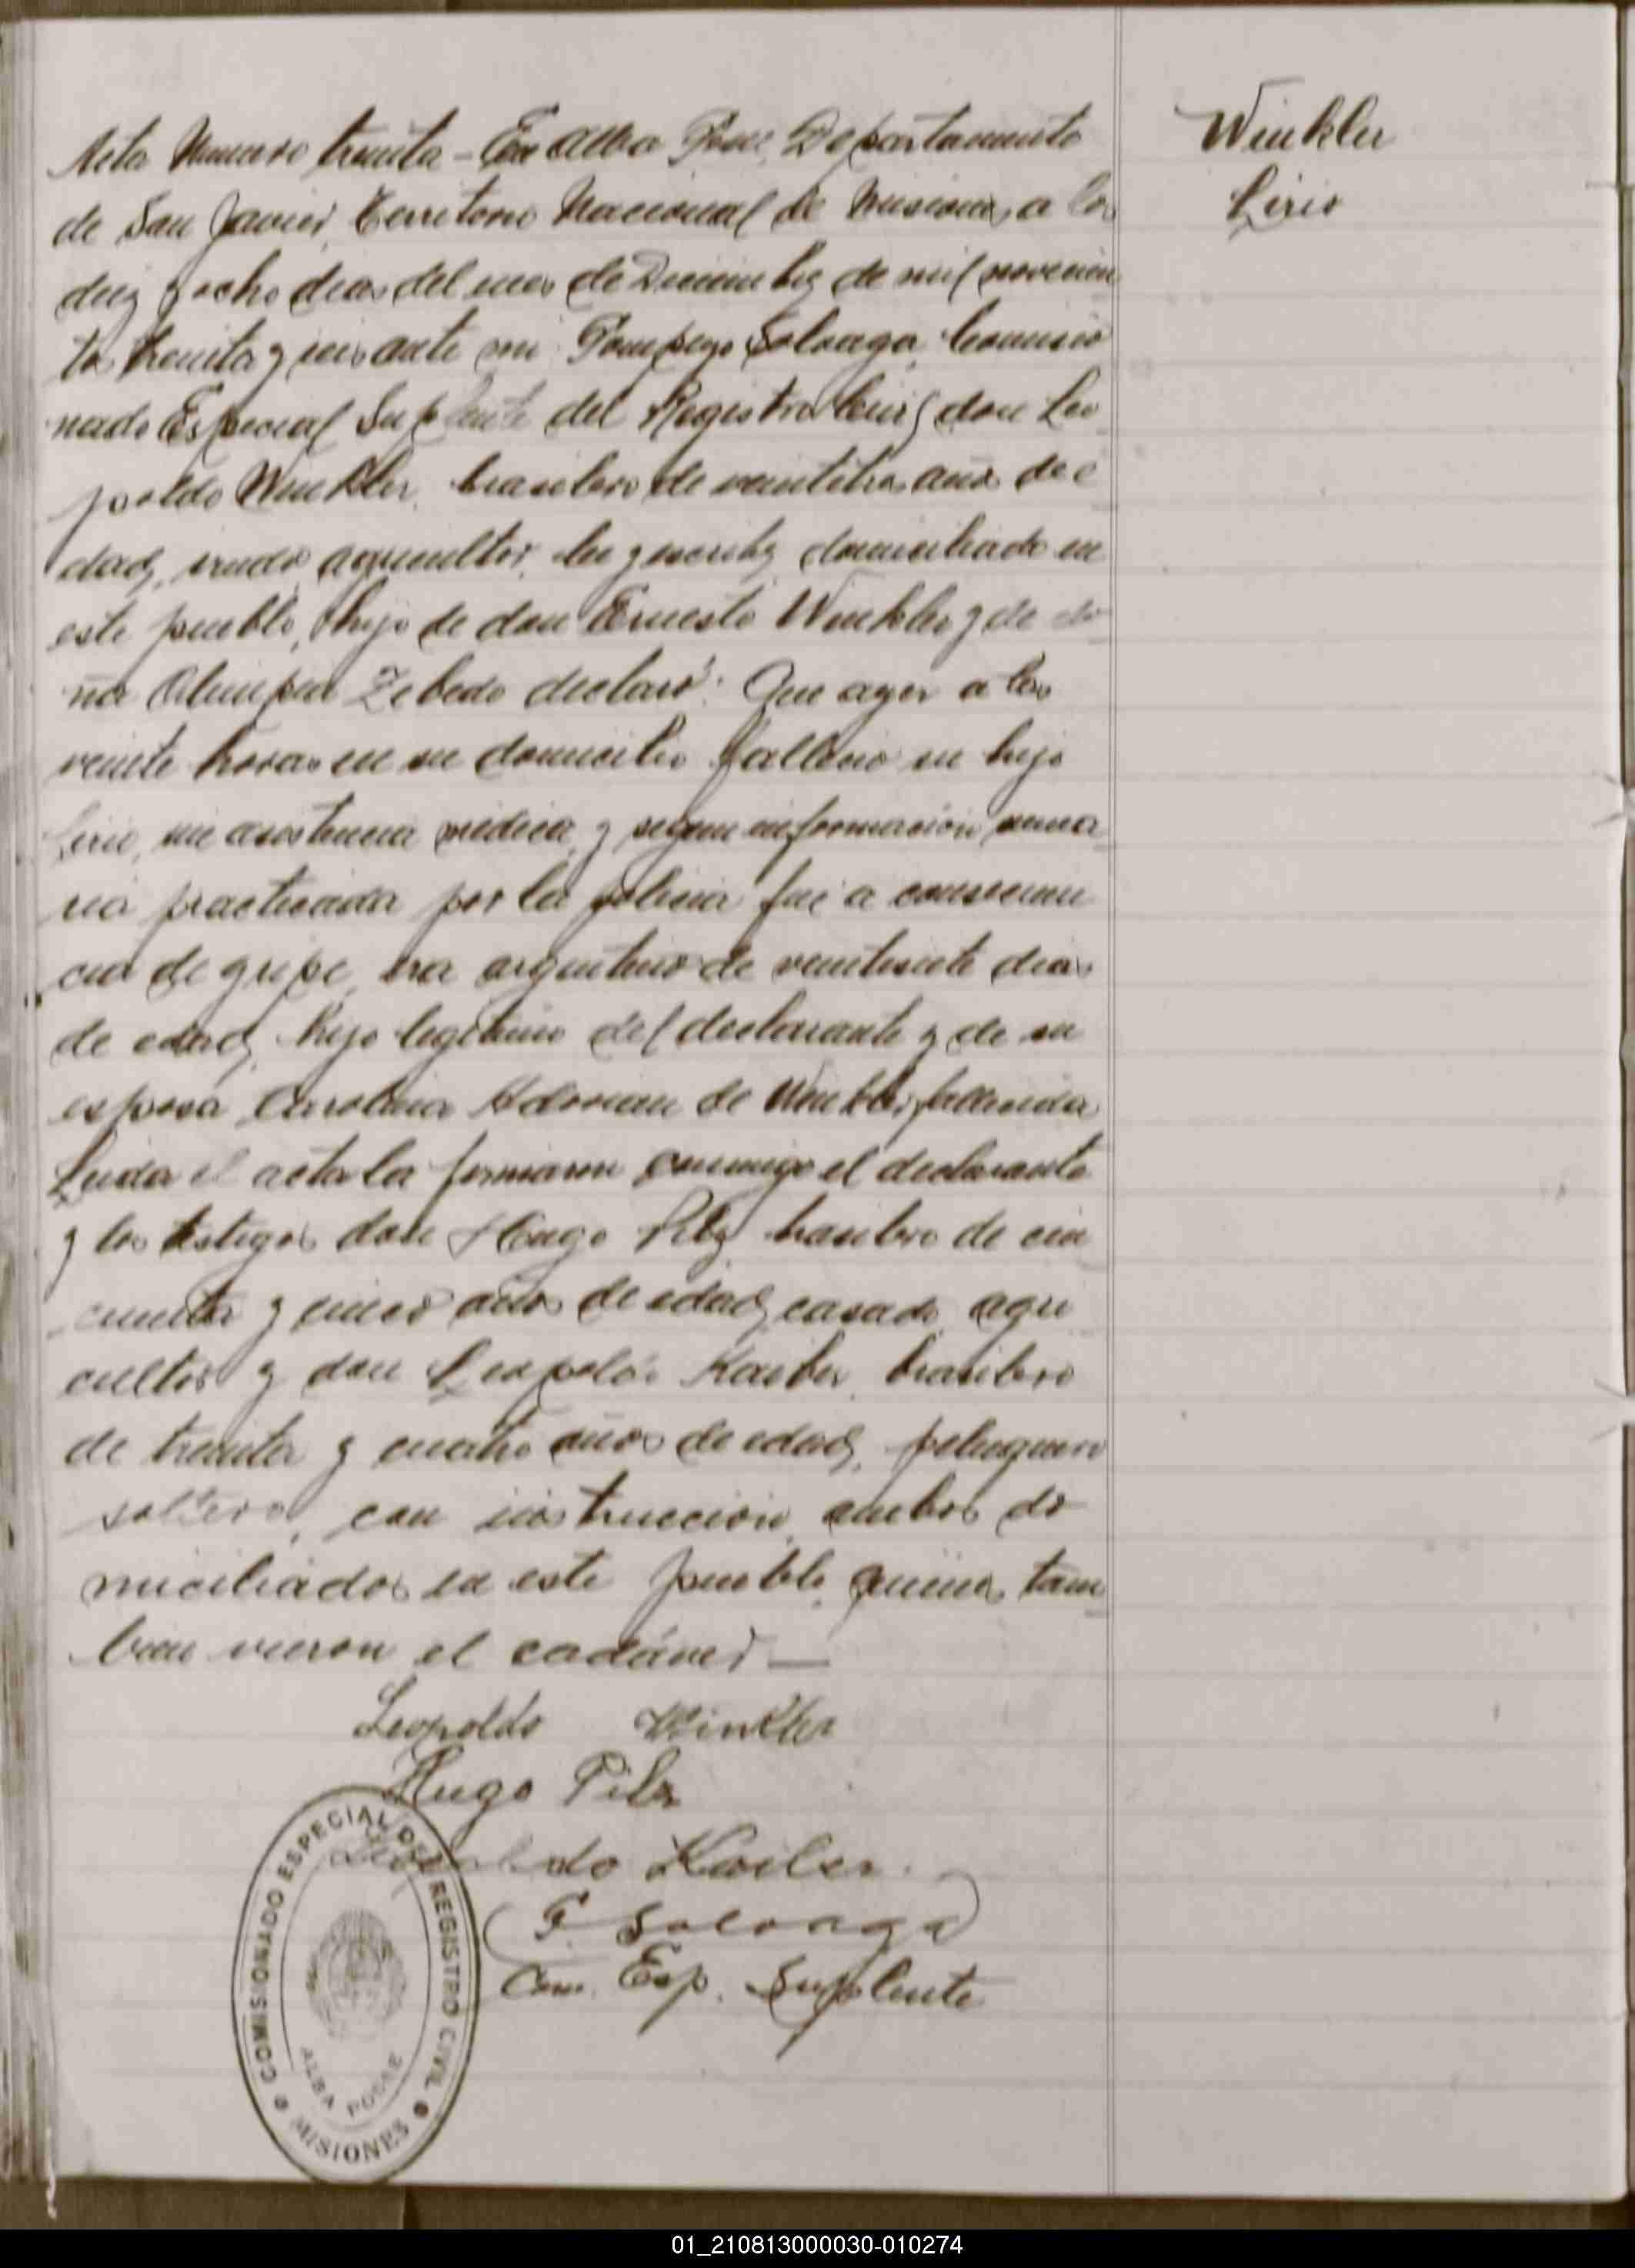 Winkler
Lirio
Acta Numero treinta - En Alba Posse, Departamento
de San Javier, Territorio Nacional de Misiones, a los
diez y ocho dias del mes de Diciembre de mil novecien
tos treinta y seis ante mi Pompeyo Soloaga, Comisio
nado Especial Suplente del Registro Civil, don Leo
poldo Winkler, brasilero de veintitres años de e
dad, viudo, agricultor, lee y escribe, domiciliado en
este pueblo, hijo de don Ernesto Winkler y de do
ña Olimpia Zebedo declaró: Que ayer a las
veinte horas en su domicilio falleció su hijo
Lirio, sin asistencia médica, y segun información suma
ria practicada por la policia fué a consecuen
cia de gripe, era argentino de veintisiete dias
de edad, hijo legitimo del declarante y de su
esposa Carolina de Winkler, fallecida
Leida el acta la firmaron conmigo el declarante
y los testigos don Hugo Pilz brasilero de cin
cuenta y cinco años de edad, casado, agri
cultor y don Leopoldo Kaiber, brasilero
de treinta y cuatro años de edad, peluquero
soltero, con instruccion, ambos do
miciliados en este pueblo, quienes tam
bien vieron el cadáver —
Leopoldo Winkler
Hugo Pilz
Leopoldo
Soloaga
Com. Esp. Suplente
COMISIONADO ESPECIAL DEL REGISTRO CIVIL
ALBA POSSE
MISIONES
01_210813000030-010274